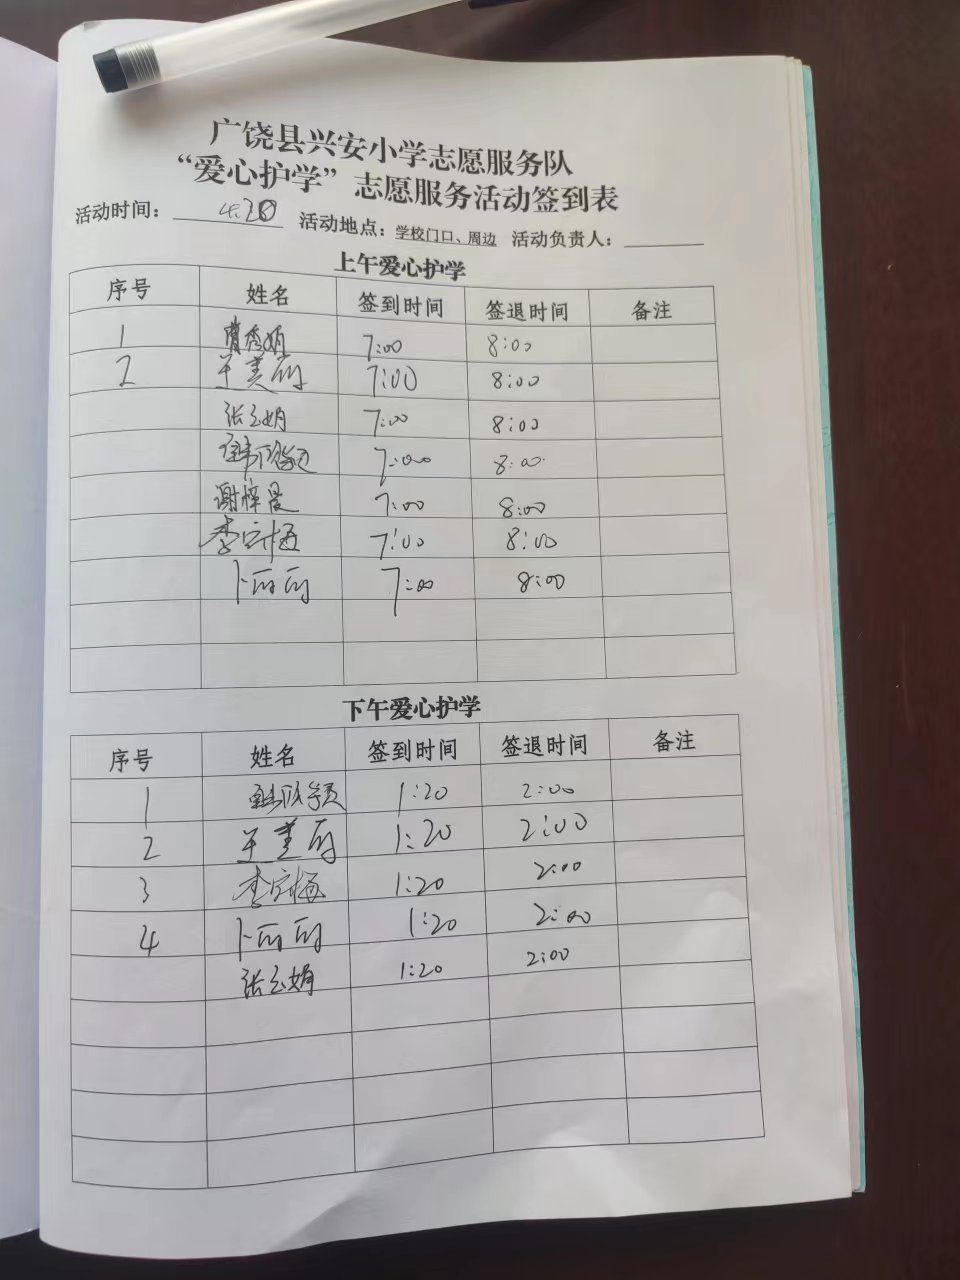 广饶县兴安小学志愿服务队
“爱心护学”志愿服务活动签到表
活动时间： 4.20 活动地点：学校门口、周边 活动负责人：
上午爱心护学
序号 姓名 签到时间 签退时间 备注
1 曹秀娟 7:00 8:00
2 7:00 8:00
张玉娟 7:00 8:00
7:00 8:00
谢梓晨 7:00 8:00
李 7:00 8:00
卜丽丽 7:00 8:00
下午爱心护学
序号 姓名 签到时间 签退时间 备注
1 1:20 2:00
2 1:20 2:00
3 李 1:20 2:00
4 卜丽丽 1:20 2:00
张玉娟 1:20 2:00